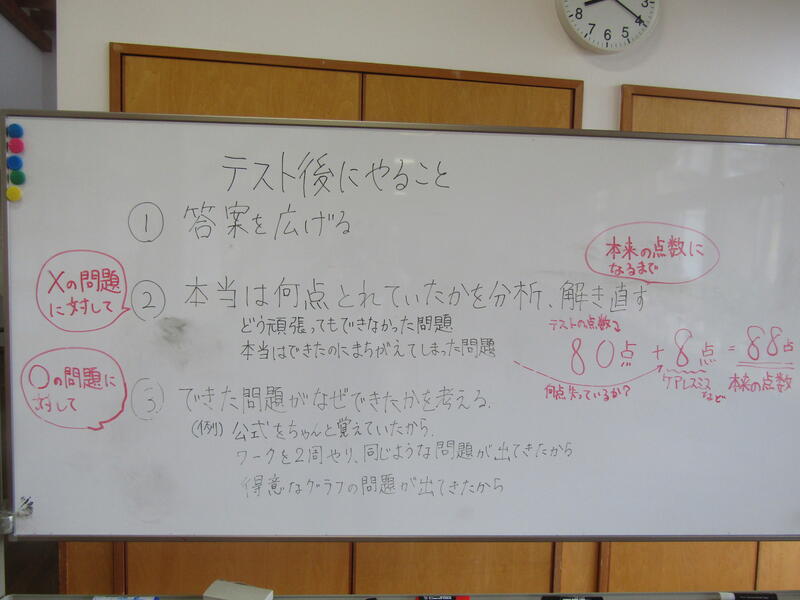 8 7 6 5 4 3
テスト後にやること
① 答案を広げる
本来の点数に
なるまで
Xの問題
に対して
② 本当は何点とれていたかを分析、解き直す
どう頑張ってもできなかった問題
本当はできたのにまちがえてしまった問題
テストの点数
80点 + 8点 = 88点
何点失っているか?
ケアレスミス
など
本来の点数
○の問題に
対して
③ できた問題がなぜできたかを考える.
(例) 公式をちゃんと覚えていたから.
ワークを2周やり、同じような問題が出てきたから
得意なグラフの問題が出てきたから